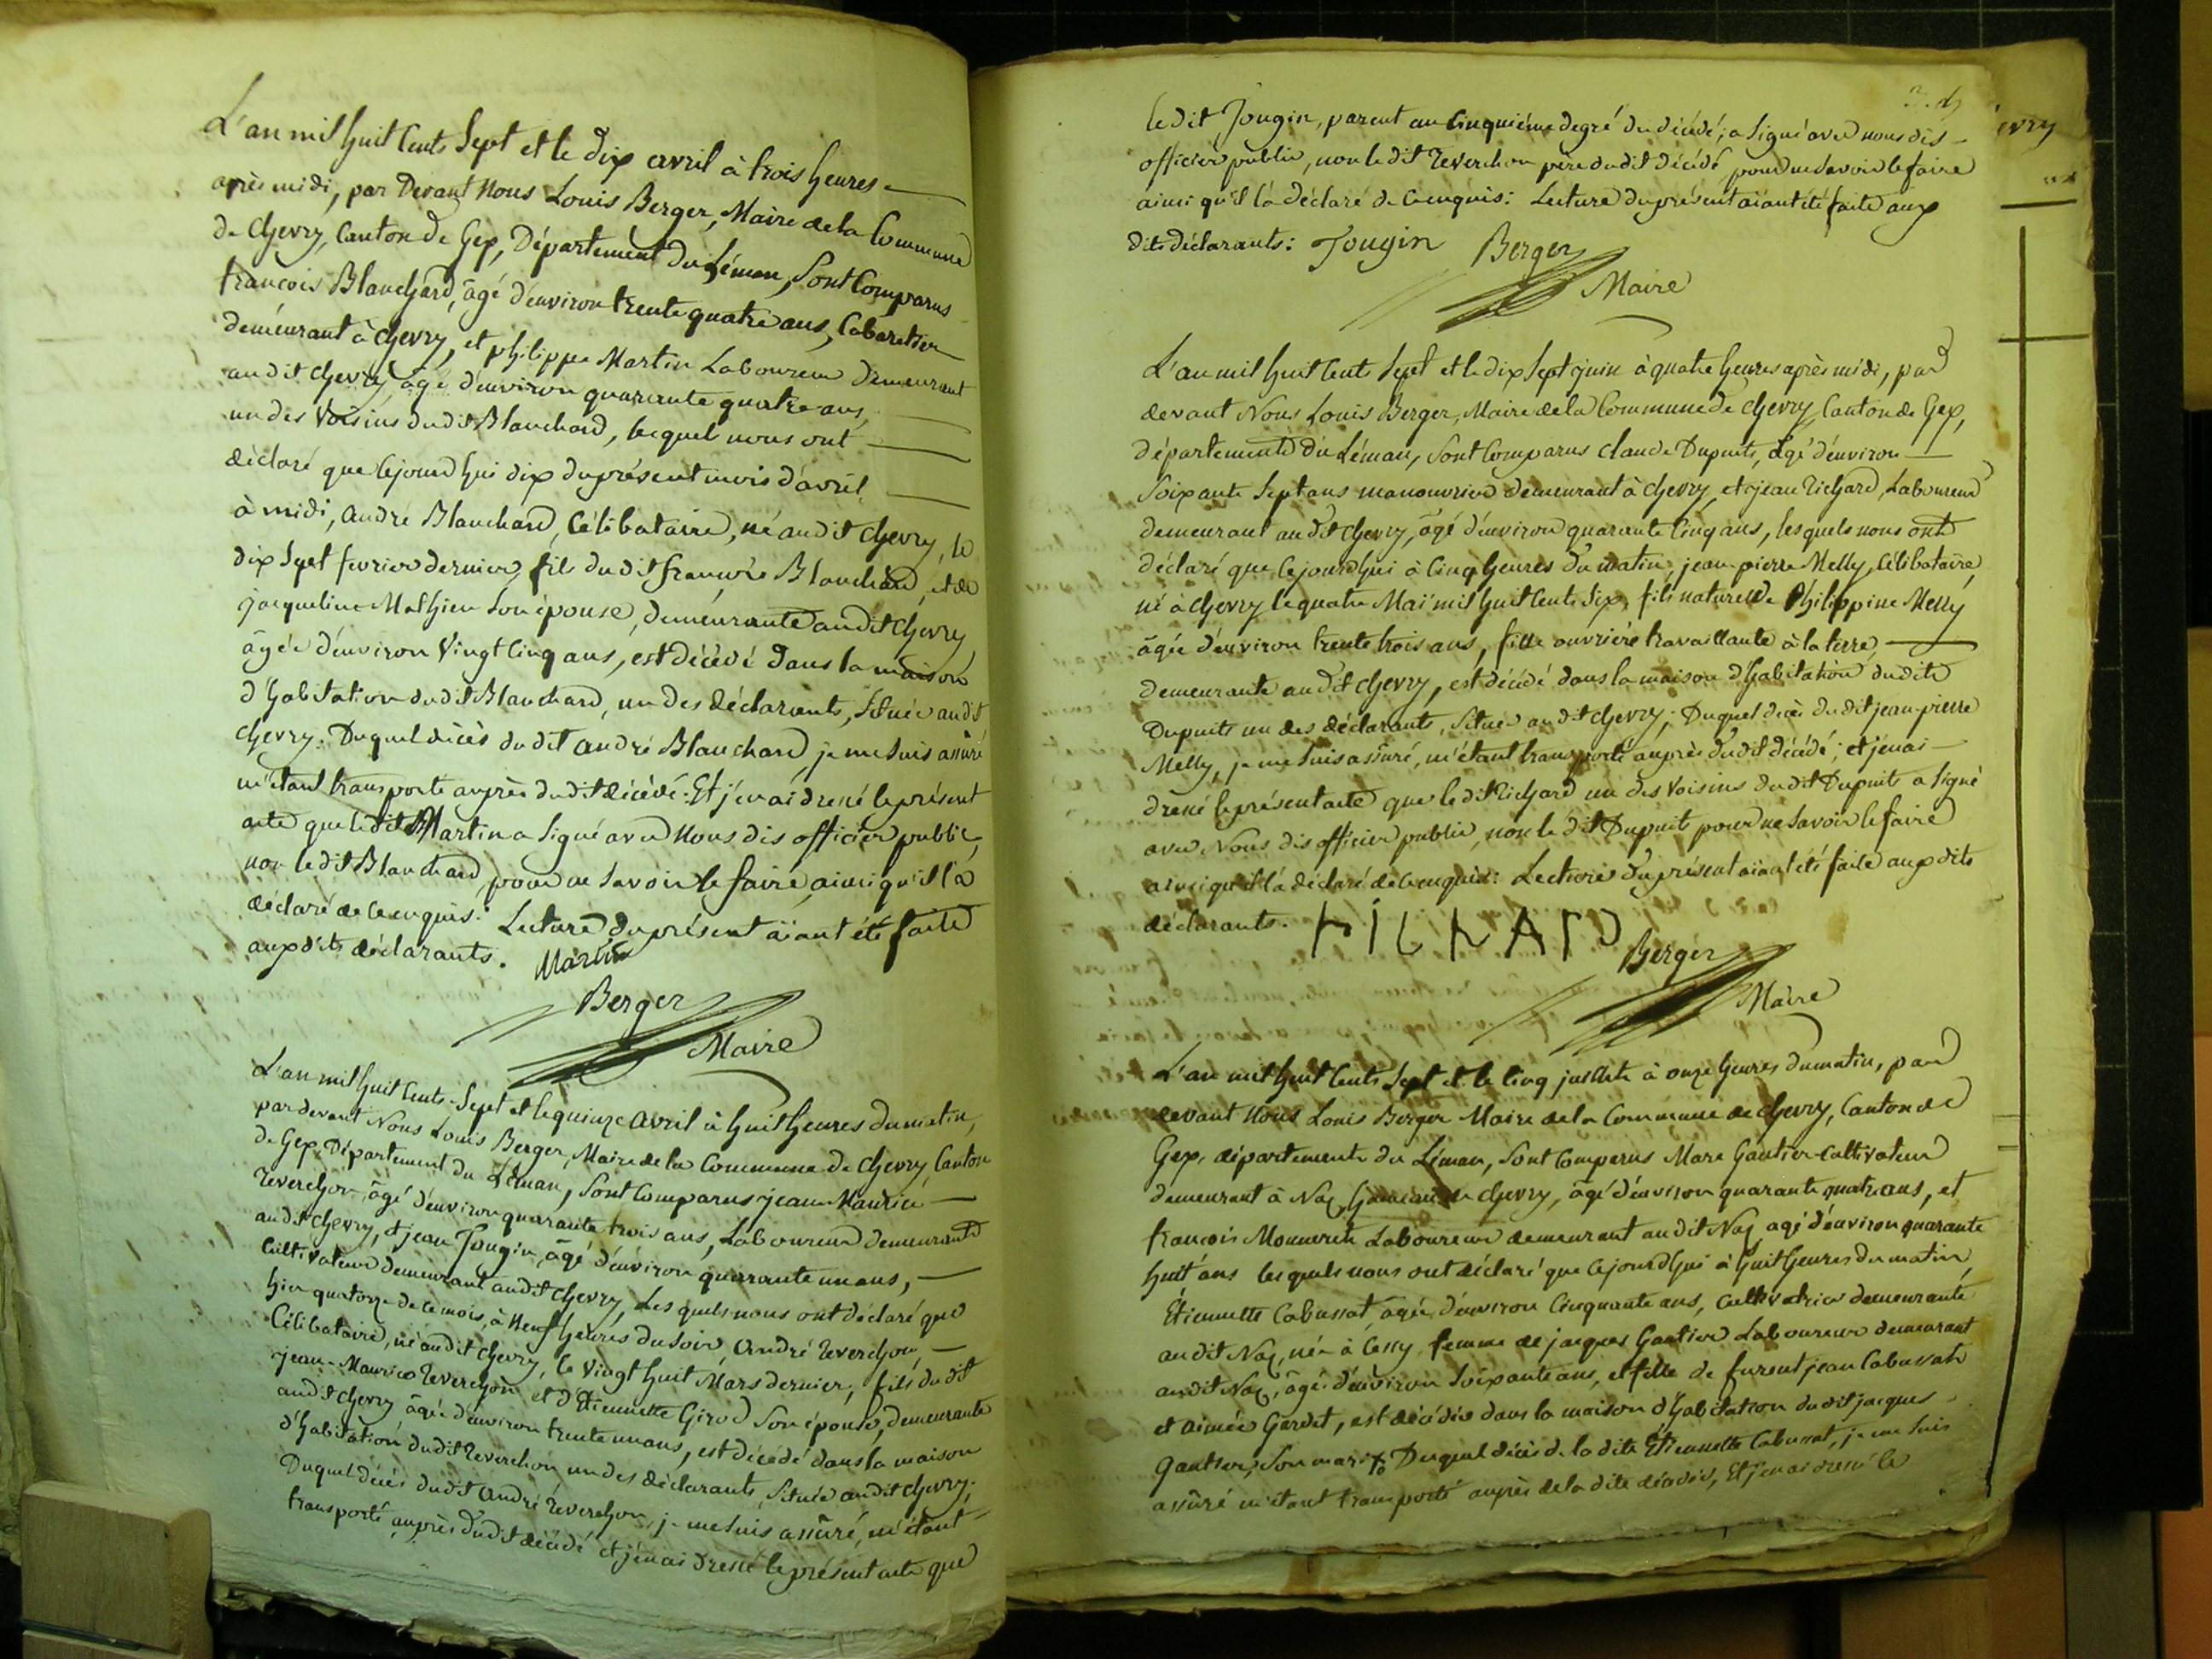 L'an mil huit cents sept et le dix avril à trois heures
après midi, par Devant Nous Louis Berger, Maire de la Commune
de Chevry, Canton de Gex, Département du Léman, sont Comparus
françois Blanchard, âgé d'environ trente quatre ans, Cabaretier
demeurant à Chevry, et philippe Martin Laboureur demeurant
audit Chevry, âgé d'environ quarante quatre ans,
un des Voisins dudit Blanchard, lesquel nous ont
déclaré que cejourd'hui dix du présent mois d'avril
à midi, andré Blanchard, Célibataire, né audit Chevry, le
dix sept fevrier dernier, fils dudit françois Blanchard, et de
jacqueline Mathieu son épouse, demeurante audit Chevry
âgée d'environ Vingt Cinq ans, est décèdé dans la maison
d'habitation dudit Blanchard, un des déclarants, située audit
Chevry: Duquel décès dudit andré Blanchard, je me suis assûré
m'étant transporté auprès dudit décèdé: Et j'en ai dressé le présent
acte que ledit Martin a signé avec nous dis officier public,
non ledit Blanchard, pour ne savoir le faire, ainsi qu'il l'a
déclaré de ce enquis: Lecture du présent aïant été faite
auxdits déclarants. Martin
Berger
Maire
L'an mil huit cents sept et le quinze avril à huit heures du matin,
pardevant Nous Louis Berger, Maire de la Commune de Chevry, Canton
de Gex, Département du Léman, sont Comparus jean Maurice
Reverchon, âgé d'environ quarante trois ans, Laboureur demeurant
audit Chevry, et jean Jougin, âgé d'environ quarante un ans,
Cultivateur demeurant audit Chevry, Les quels nous ont déclaré que
hier quatorze de ce mois, à Neuf heures du soir, André Reverchon,
Célibataire, né audit Chevry, le Vingt huit Mars dernier, fils dudit
jean-Maurice Reverchon et d'Etiennette Girod son épouse, demeurante
audit Chevry âgée d'environ trente un ans, est décédé dans la maison
d'habitation dudit Reverchon un des déclarants, située audit Chevry;
Duquel décès dudit André Reverchon, je me suis assûré, m'étant
transporté auprès dudit décédé et j'en ai dressé le présent acte que
le dit Jougin, parent au Cinquième degré du décédé, a signé avec nous dis
officier public, non le dit Reverchon père dudit décédé, pour ne savoir le faire
ainsi qu'il l'a déclaré de ce enquis: Lecture du présent aïant été faite aux
dits déclarants: Jougin Berger
Maire
L'an mil huit cents sept et le dix sept juin à quatre heures après midi, par
devant Nous Louis Berger, Maire de la Commune de Chevry, Canton de Gex,
département du Léman, sont Comparus Claude Dupuits, âgé d'environ
soixante sept ans manouvrier demeurant à Chevry, et jean Richard, Laboureur
demeurant audit Chevry, âgé d'environ quarante cinq ans, les quels nous ont
déclaré que cejourd'hui à Cinq heures du matin, jean-pierre Melly, Célibataire,
né à Chevry le quatre Mai mil huit cents six, fils naturel de Philippine Melly
âgée d'environ trente trois ans, fille ouvrière travaillante à la terre,
demeurante audit Chevry, est décédé dans la maison d'habitation dudit
Dupuits un des déclarants, située audit Chevry; Duquel décès dudit jean-pierre
Melly, je me suis assûré, m'étant transporté auprès dudit décédé; et j'en ai
dressé le présent acte que ledit Richard un des Voisins dudit Dupuits a signé
avec Nous dis officier public, non le dit Dupuit pour ne savoir le faire
ainsi qu'il l'a déclaré de ce enquis: Lecture du présent aïant été faite auxdits
déclarants.
Berger
Maire
L'an mil huit cents sept et le cinq juillet à onze heures du matin, par
devant Nous Louis Berger Maire de la Commune de Chevry, Canton de
Gex, département du Léman, sont Comparus Marc Gautier Cultivateur
demeurant à Naz, hameau de Chevry, âgé d'environ quarante quatre ans, et
françois Monneret Laboureur demeurant audit Naz, agé d'environ quarante
huit ans les quels nous ont déclaré que cejourd'hui à huit heures du matin
Etiennette Cabussat, agée d'environ Cinquante ans, cultivatrice demeurante
audit Naz, née à Cessy femme de jacques Gautier Laboureur demeurant
audit Naz, âgé d'environ soixante ans, et fille de furent jean Cabussat
et aimée Gardet, est décédée dans la maison d'habitation dudit jacques
Gautier, son mari: Duquel décès de la dite Etiennette Cabussat, je me suis
assûré m'étant transporté auprès de la dite décédée, Et j'en ai dressé le